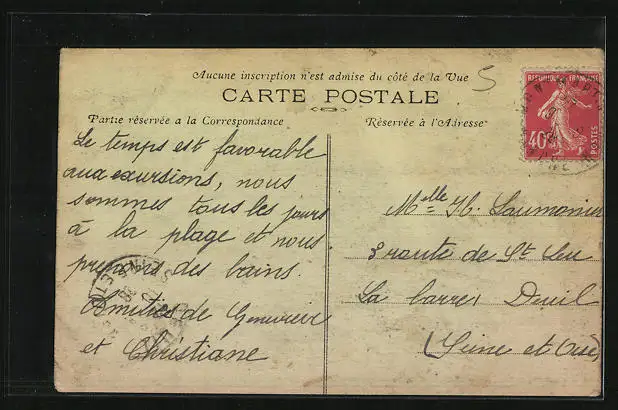 Aucune inscription n'est admise du côté de la Vue
5
CARTE POSTALE
Partie réservée a la Correspondance
Réservée à l'Adresse
RÉPUBLIQUE FRANÇAISE
40c
POSTES
Le temps est favorable
aux excursions, nous
sommes tous les jours
à la plage et nous
prenons des bains.
Amitiés de Geneviève
et Christiane
Melle H. Laumonier
3 route de St Leu
La barre Deuil
(Seine et Oise)